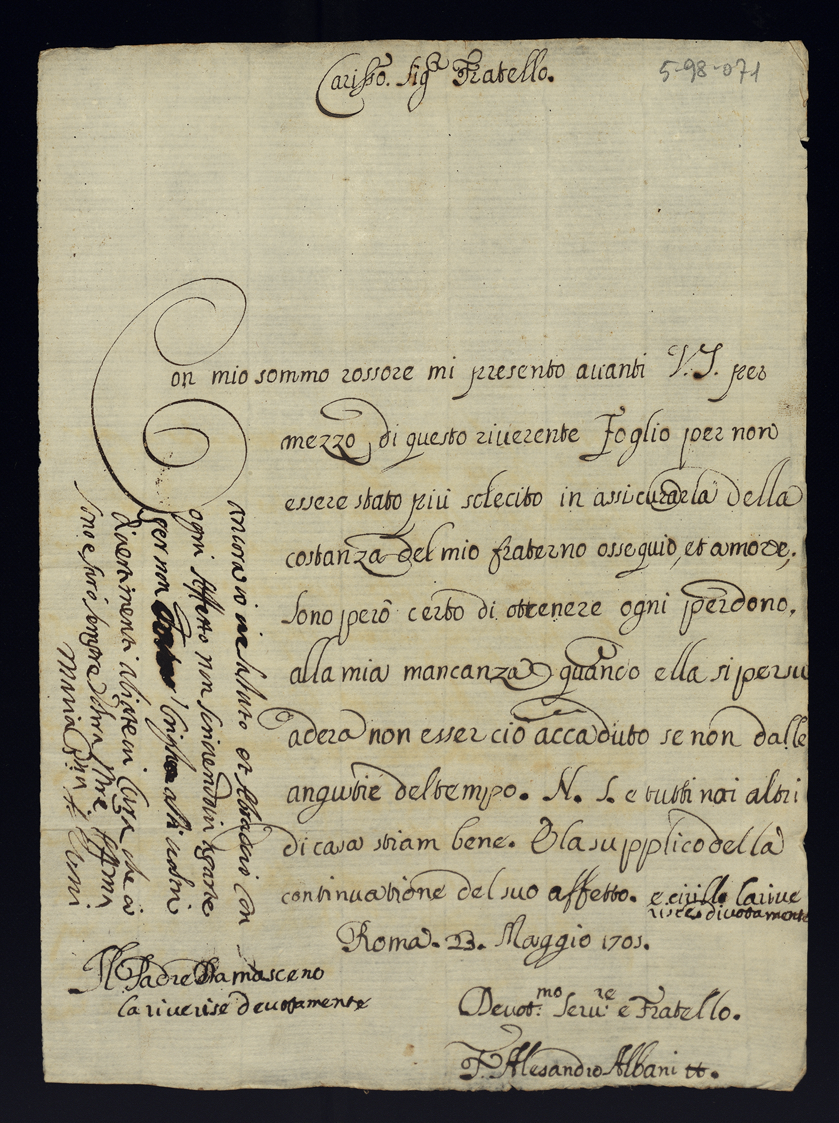 Cariss.o Sig.r Fratello.
5-98-071
Con mio sommo rossore mi presento auanti V.S. per
mezzo di questo riuerente Foglio per non
essere stato più solecito in assicurarla della
costanza del mio fraterno ossequio, et amore,
sono però certo di ottenere ogni perdono,
alla mia mancanza quando ella si persu
aderà non esser ciò accaduto se non dalle
angustie del tempo. N. S. e tutti noi altri
di casa stiam bene. E la supplico della
continuatione del suo affetto. e cirillo la riue
risce diuotamente
Roma. 23. Maggio 1701.
Deuot.mo Seru.re e Fratello.
F. Alesandro Albani
Il Padre Damasceno
la riuerise deuotamente
ancora io ue saluto et abracio con
ogni affetto non
per non altri uostri
diuertimenti che a
sono e sarò sempre uostra
Maria